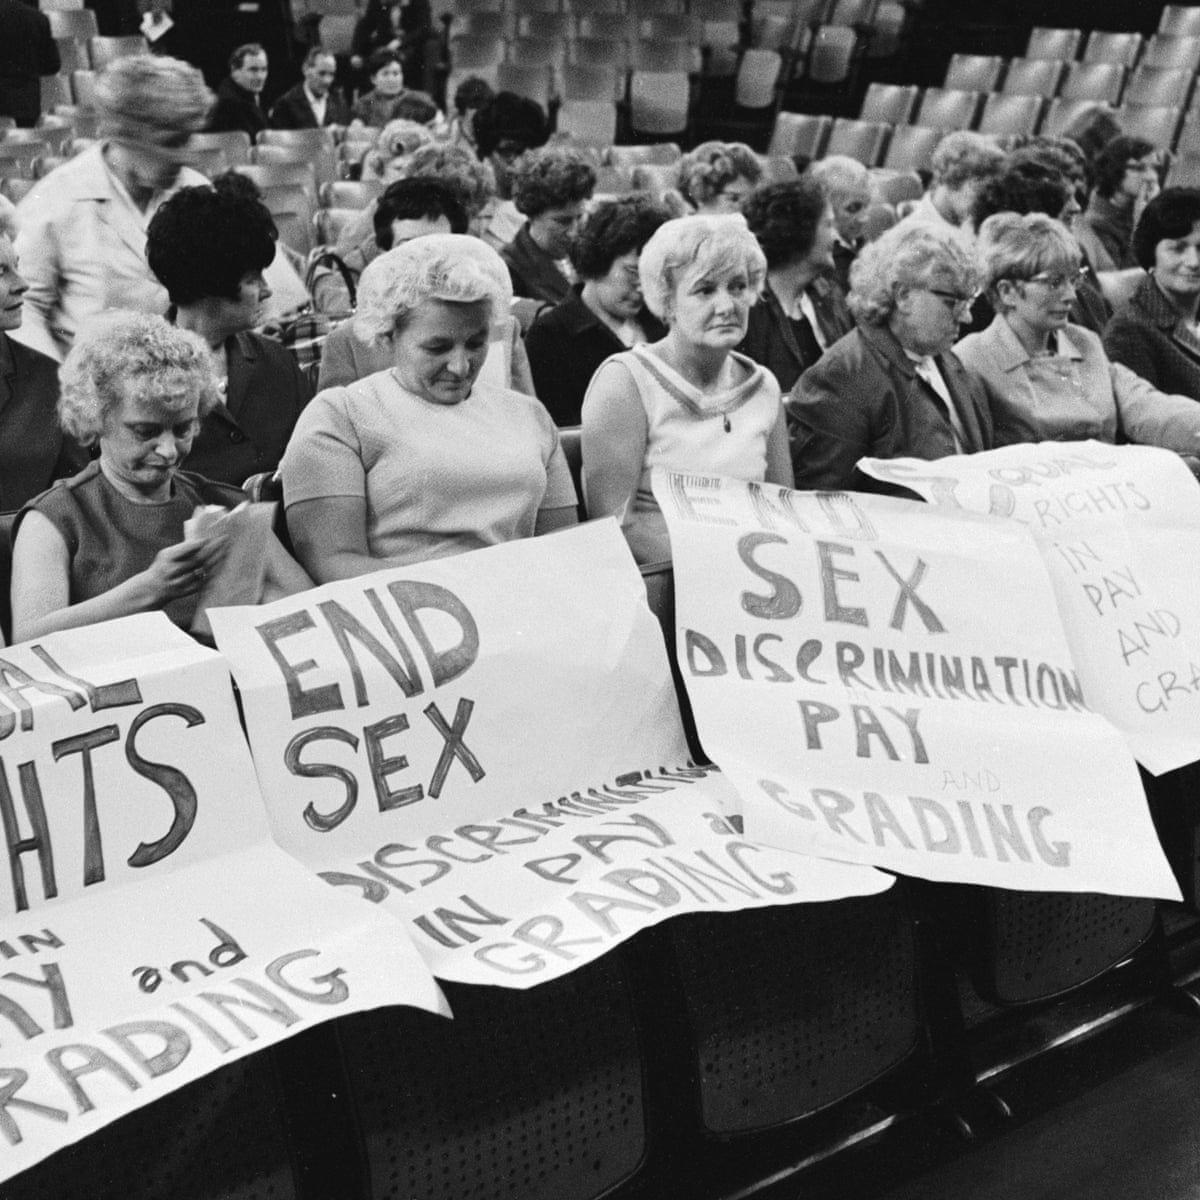 UAL
HTS
IN
AY and
RADING
END
SEX
DISCRIMINATION
IN PAY and
GRADING
END
SEX
DISCRIMINATION
IN
PAY
AND
GRADING
EQUAL
RIGHTS
IN
PAY
AND
GRA